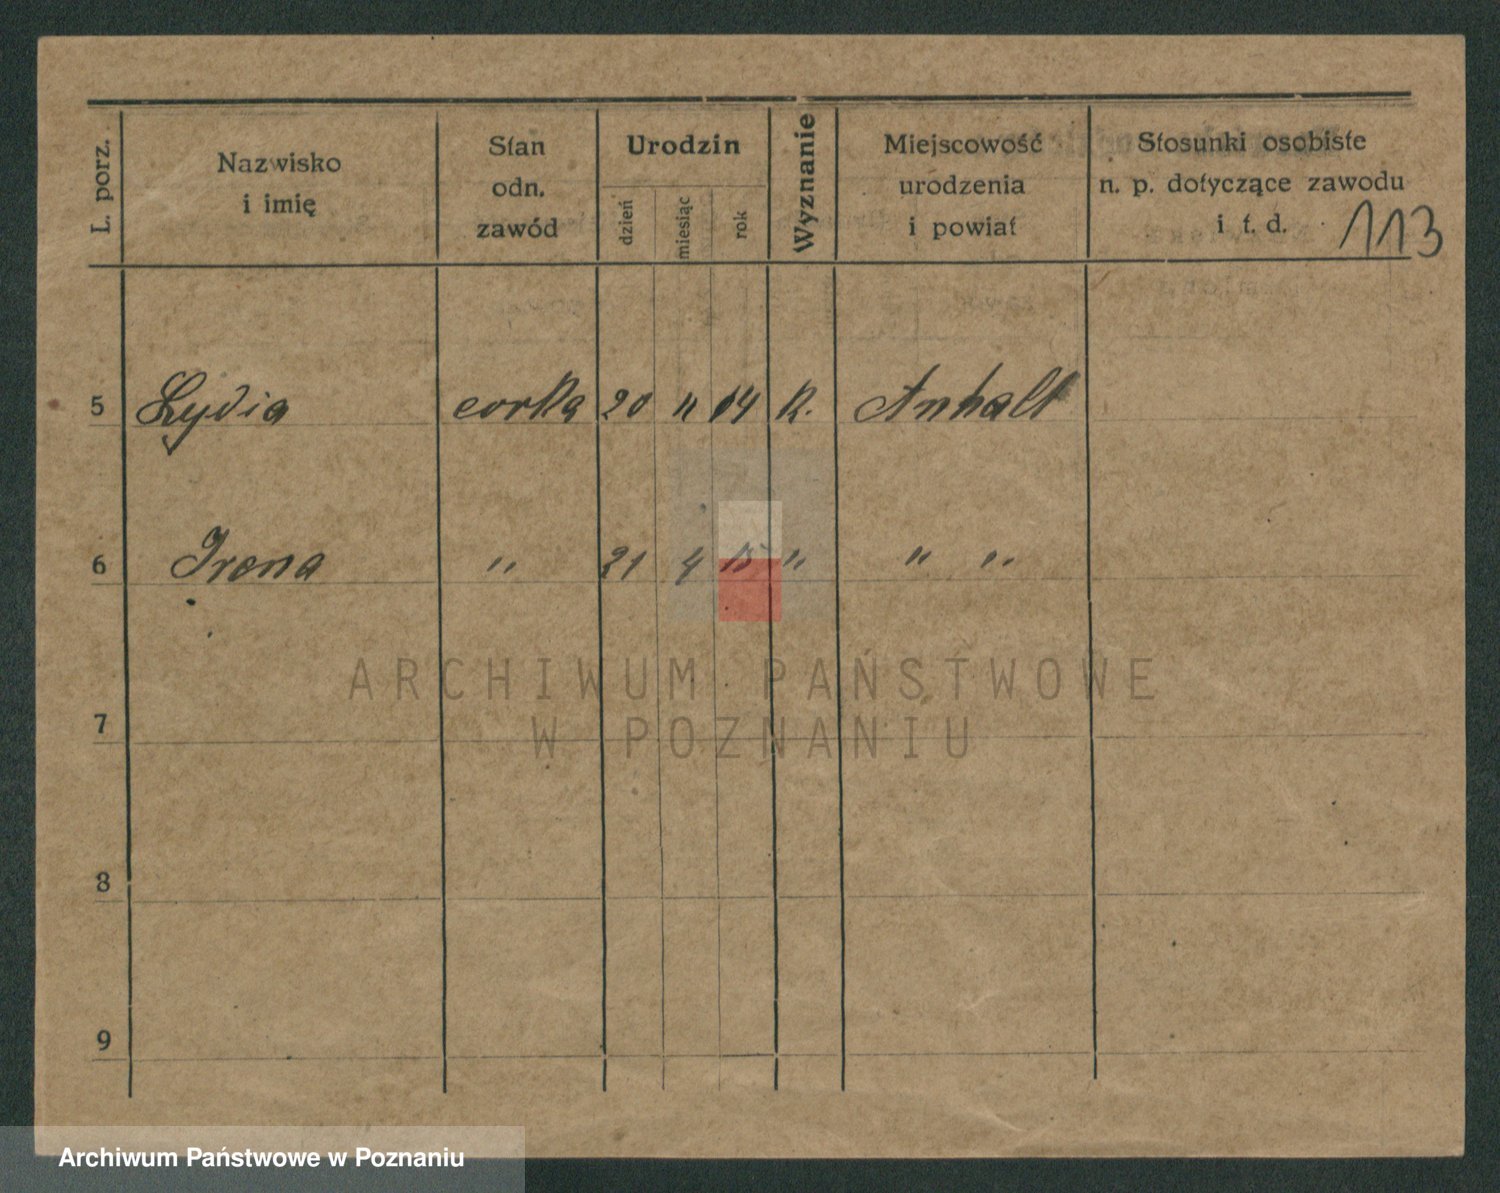 L. porz.
Nazwisko
i imię
Stan
odn.
zawód
Urodzin
dzień
miesiąc
rok
Wyznanie
Miejscowość
urodzenia
i powiat
Stosunki osobiste
n. p. dotyczące zawodu
i t. d.
113
5 Lydia corka 20 11 04 K. Anhalt
6 Irena " 21 4 15 " " "
ARCHIWUM PAŃSTWOWE
W POZNANIU
7
8
9
Archiwum Państwowe w Poznaniu